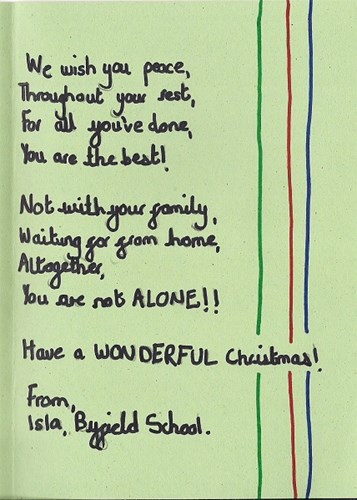 We wish you peace,
Throughout your rest,
For all you've done,
You are the best!
Not with your family,
Waiting far from home,
Altogether,
You are not ALONE!!
Have a WONDERFUL Christmas!
From,
Isla, Byfield School.